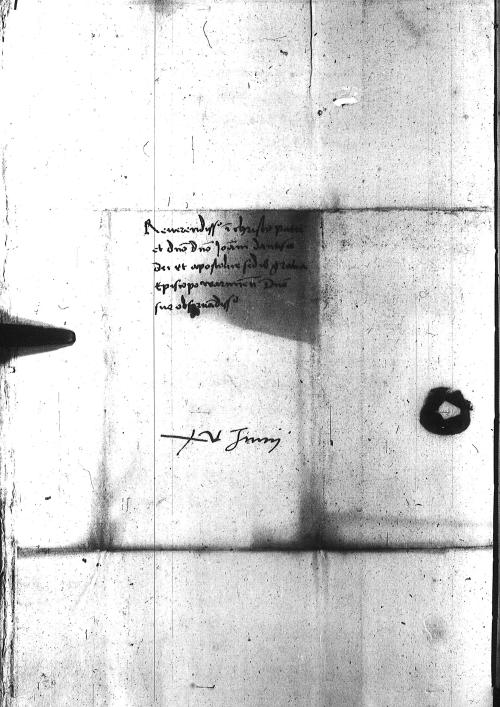 Reverendissº i christo patri
et Dnō Dnō Joāni Dantisco
Dei et apostolice sedis gratia
Episcopo warmien Dnō
suo obseruādissº
XV Junij